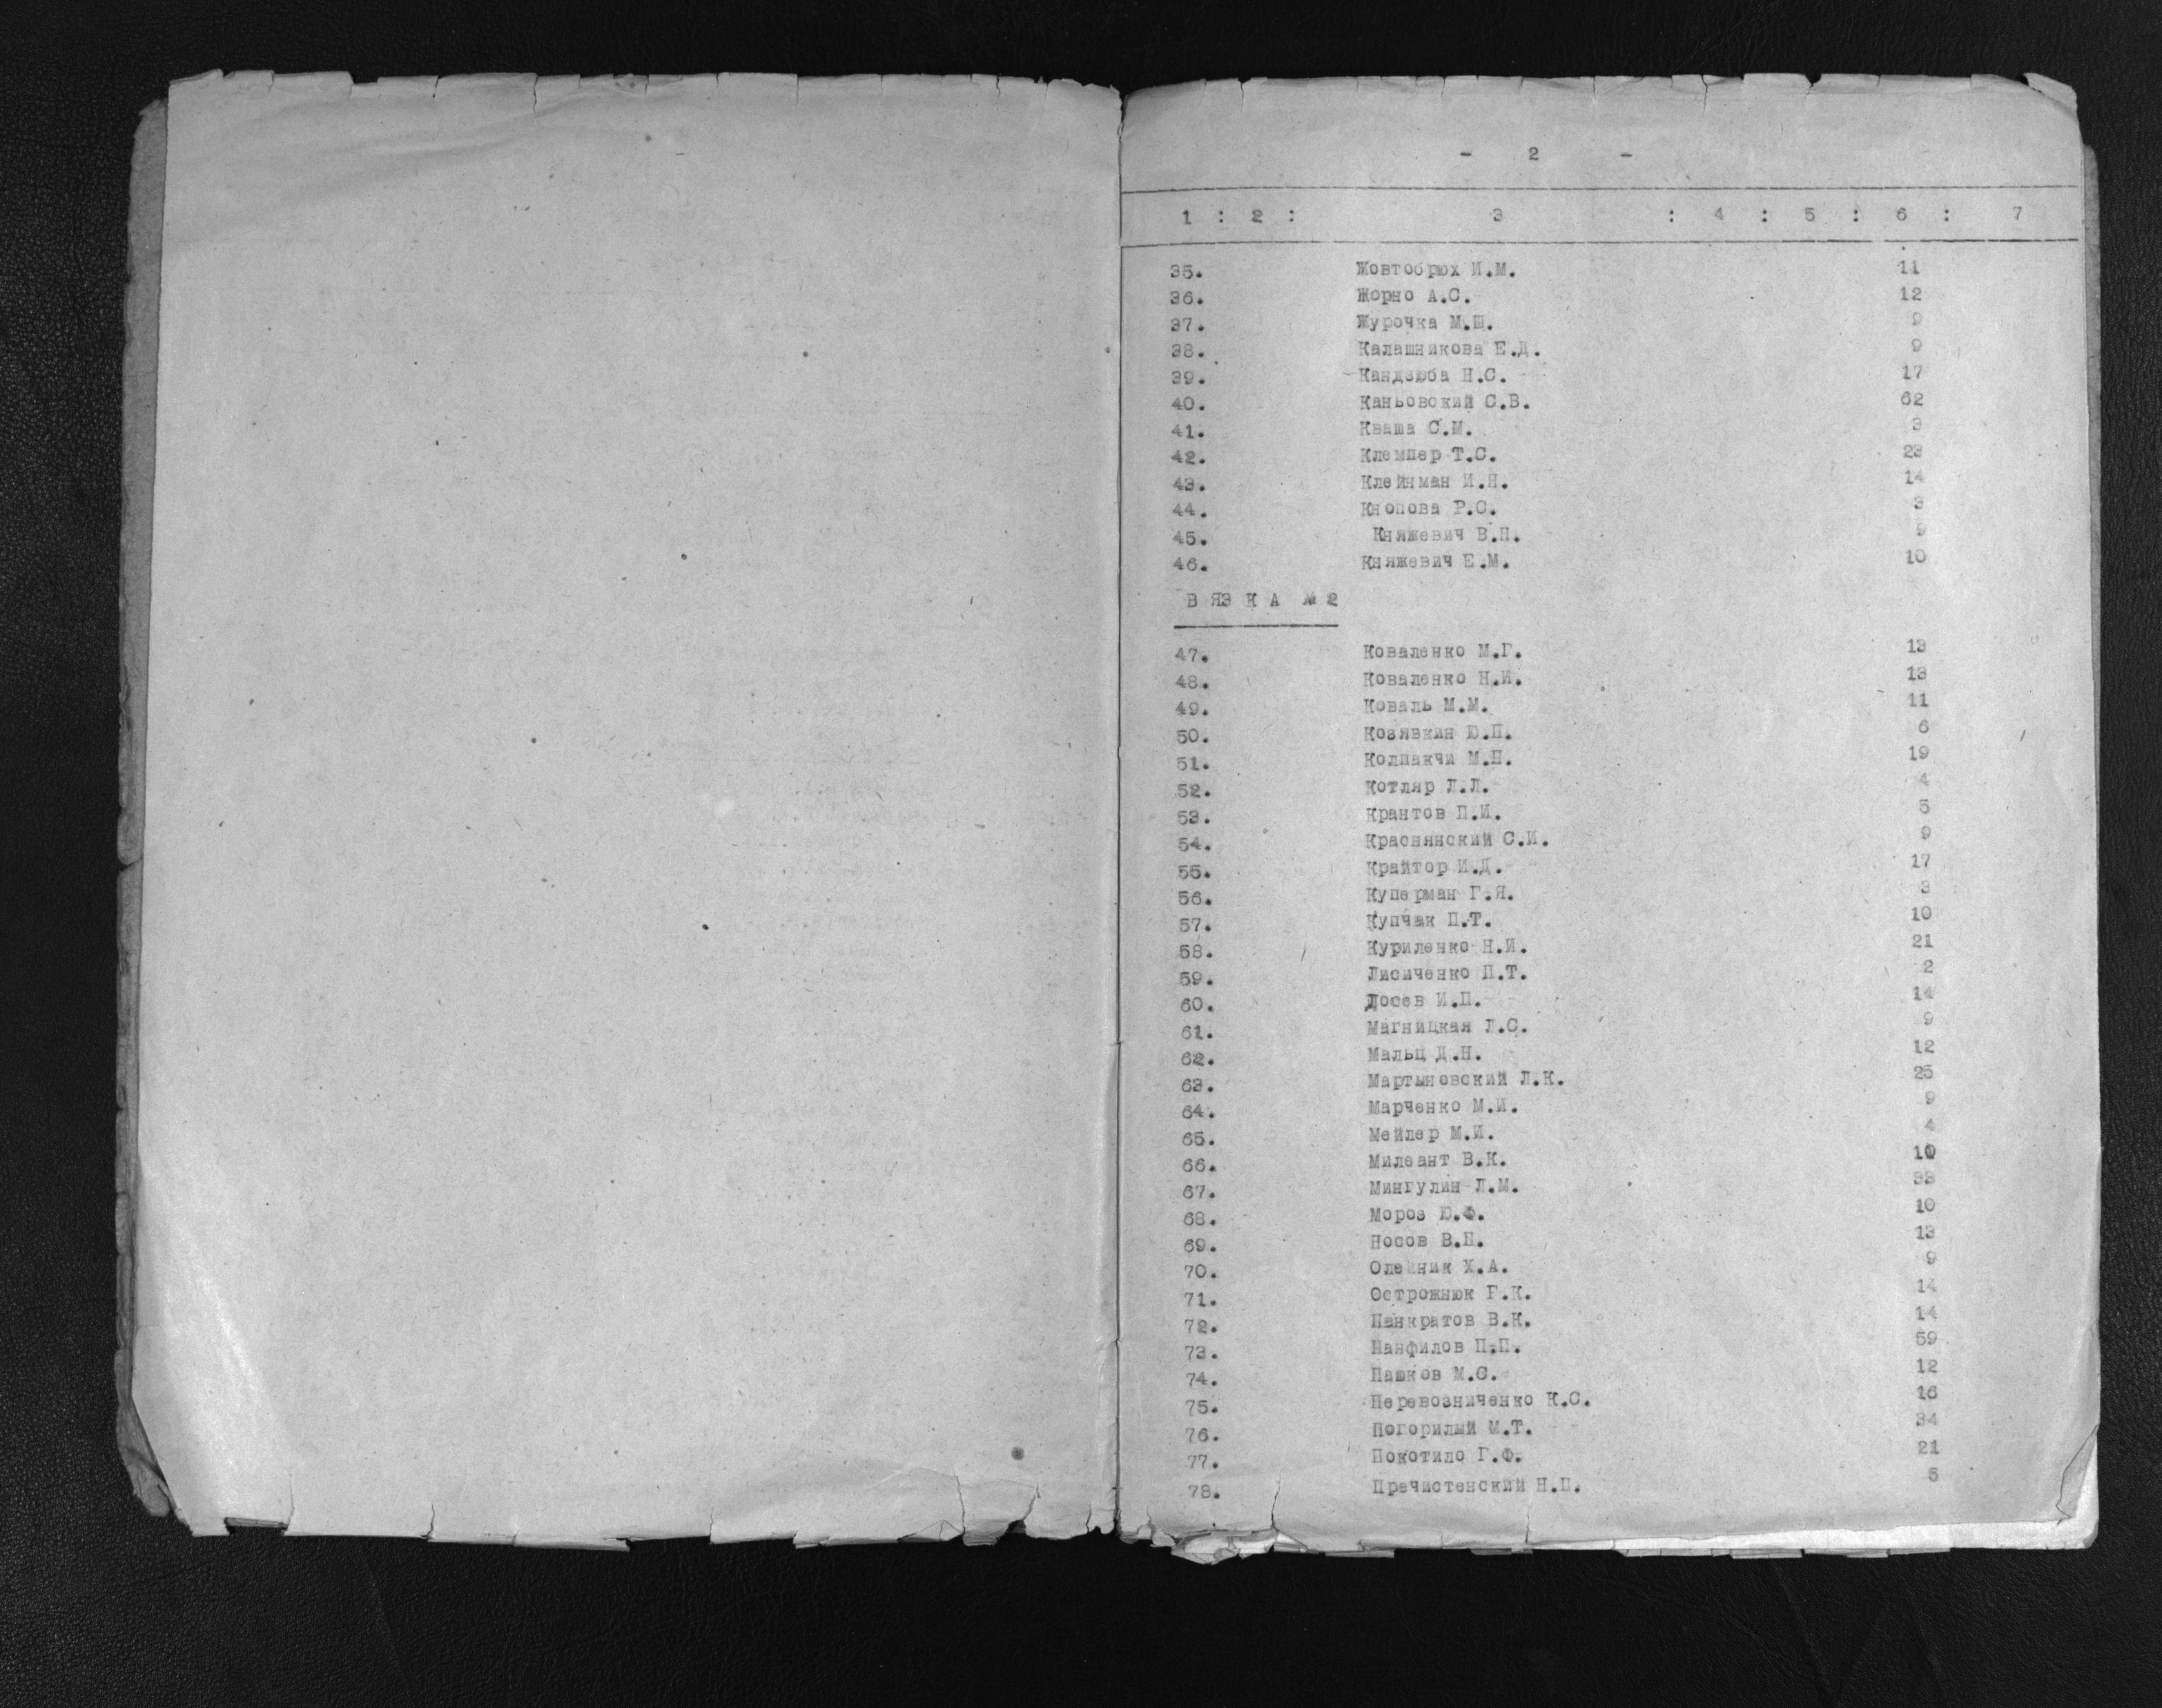 - 2 -
1 : 2 : 3 : 4 : 5 : 6 : 7
35. Жовтобрюх И.М. 11
36. Жорно А.С. 12
37. Журочка М.Ш. 9
38. Калашникова Е.Д. 9
39. Кандзюба Н.С. 17
40. Каньовский С.В. 62
41. Кваша С.М. 3
42. Клемпер Т.С. 23
43. Клейнман И.Н. 14
44. Кнопова Р.С. 3
45. Княжевич В.Н. 9
46. Княжевич Е.М. 10
В Я З К А № 2
47. Коваленко М.Г. 13
48. Коваленко Н.И. 13
49. Коваль М.М. 11
50. Козявкин Ю.П. 6
51. Колпакчи М.Н. 19
52. Котляр Л.Л. 4
53. Крантов П.И. 5
54. Краснянский С.И. 9
55. Крайтор И.Д. 17
56. Куперман Г.Я. 3
57. Купчак П.Т. 10
58. Куриленко Н.И. 21
59. Лисиченко П.Т. 2
60. Лосев И.П. 14
61. Магницкая Л.С. 9
62. Мальц Д.Н. 12
63. Мартыновский Л.К. 25
64. Марченко М.И. 9
65. Мейлер М.И. 4
66. Милеант В.К. 10
67. Мингулин Л.М. 33
68. Мороз Ю.Ф. 10
69. Носов В.Н. 13
70. Олейник Х.А. 9
71. Острожнюк Г.К. 14
72. Панкратов В.К. 14
73. Панфилов П.П. 59
74. Пашков М.С. 12
75. Перевозниченко К.С. 16
76. Погорилый М.Т. 34
77. Покотило Г.Ф. 21
78. Пречистенский Н.П. 5